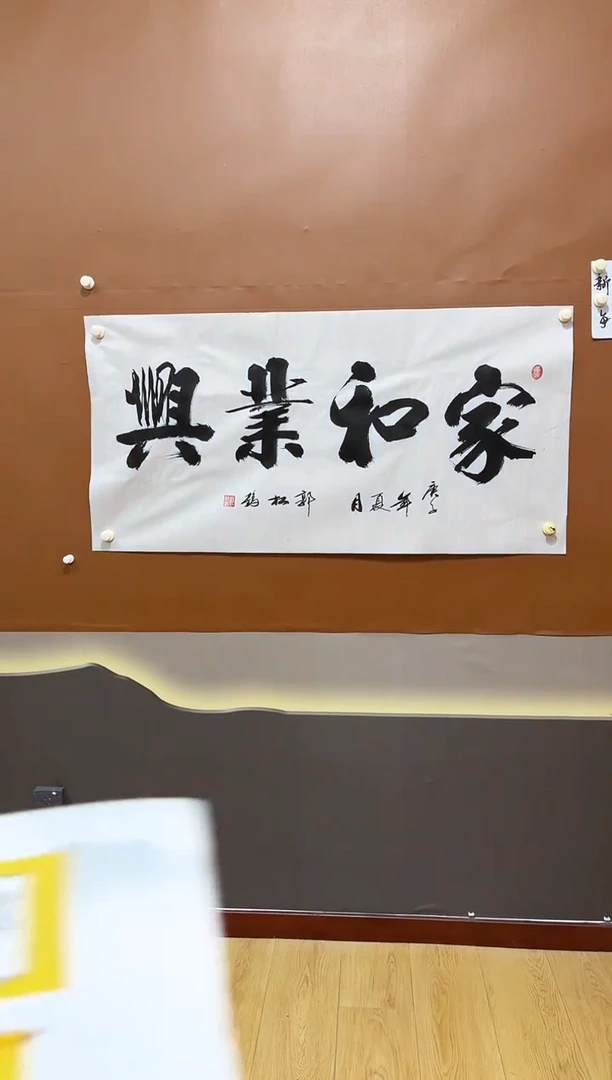 家和業興
庚子年夏月 郭松
新年